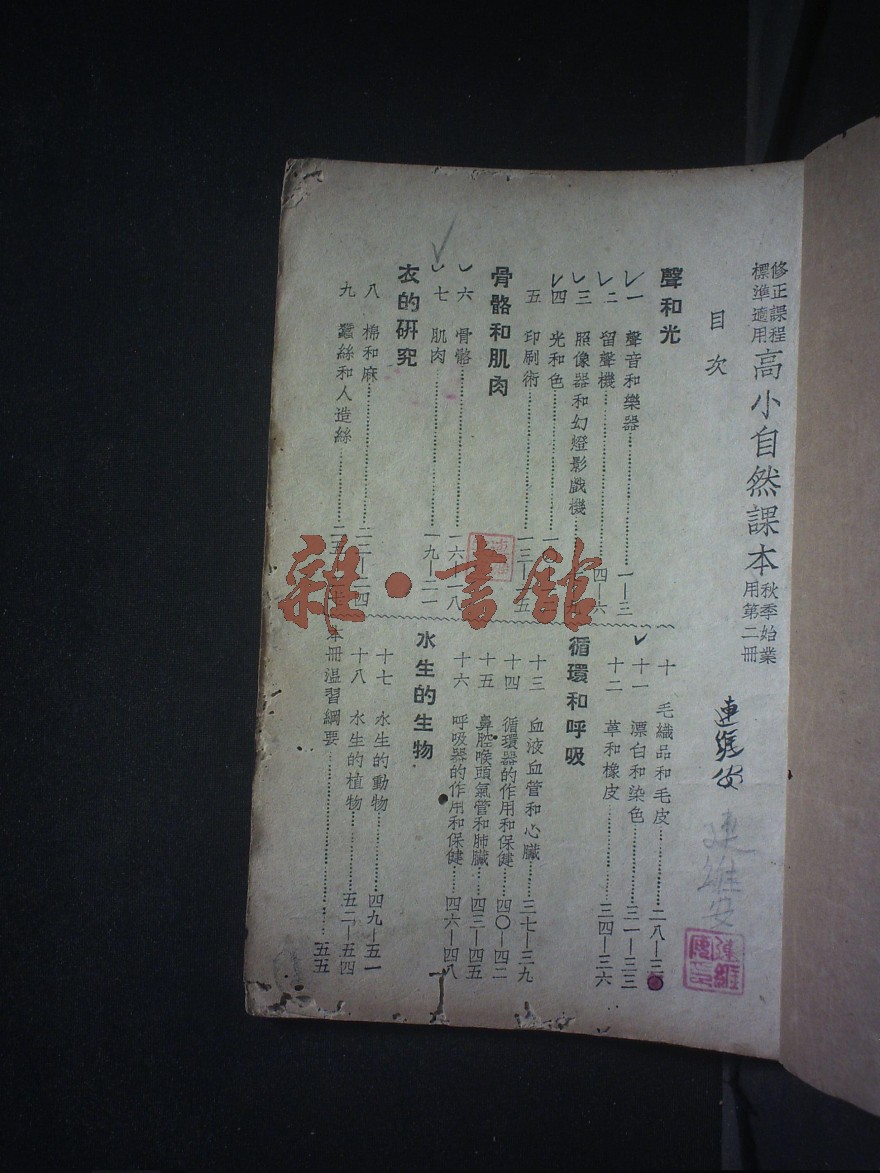 修正課程標準適用 高小自然課本 秋季始業用第二冊
目次
聲和光
一 聲音和樂器 一—三
二 留聲機 四—六
三 照像器和幻燈影戲機
四 光和色 一〇
五 印刷術 一三—一五
骨骼和肌肉
六 骨骼 一六—一八
七 肌肉 一九—二一
衣的研究
八 棉和麻 二二—二四
九 蠶絲和人造絲 二五
十 毛織品和毛皮 二八—三
十一 漂白和染色 三一—三三
十二 草和橡皮 三四—三六
循環和呼吸
十三 血液血管和心臟 三七—三九
十四 循環器的作用和保健 四〇—四二
十五 鼻腔喉頭氣管和肺臟 四三—四五
十六 呼吸器的作用和保健 四六—四八
水生的生物
十七 水生的動物 四九—五一
十八 水生的植物 五二—五四
本冊溫習綱要 五五
連維安
連維安
雜·書館